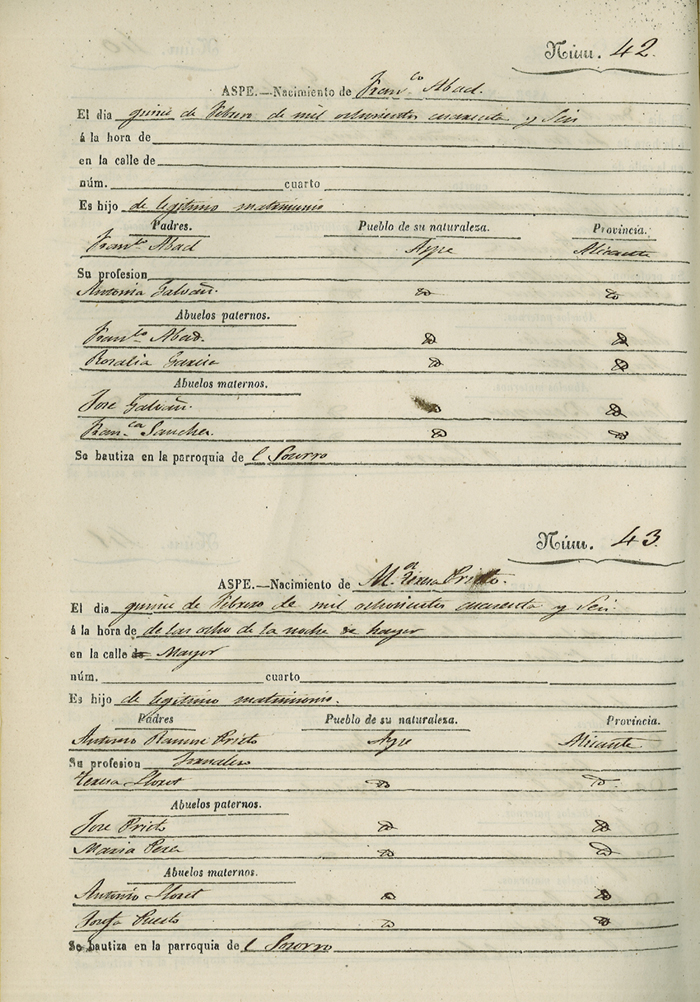 Núm. 42
ASPE.—Nacimiento de Fran.co Abad.
El dia quince de Febrero de mil ochocientos cuarenta y Seis
á la hora de
en la calle de
núm. cuarto
Es hijo de legitimo matrimonio
Padres. Pueblo de su naturaleza. Provincia.
Fran.co Abad Aspe Alicante
Su profesion
Antonia Galvañ. do do
Abuelos paternos.
Fran.co Abad. do do
Rosalia Garcia do do
Abuelos maternos.
Jose Galvañ. do do
Fran.ca Sanchez do do
Se bautiza en la parroquia de l Socorro
Núm. 43
ASPE.—Nacimiento de M.a Teresa Prieto.
El dia quince de Febrero de mil ochocientos cuarenta y Seis
á la hora de de las ocho de la noche de hayer
en la calle de Mayor
núm. cuarto
Es hijo de legitimo matrimonio.
Padres Pueblo de su naturaleza. Provincia.
Antonio Ramon Prieto Aspe Alicante
Su profesion
Teresa Lloret do do
Abuelos paternos.
Jose Prieto do do
Maria Perez do do
Abuelos maternos.
Antonio Lloret do do
Josefa do do
Se bautiza en la parroquia de l Socorro